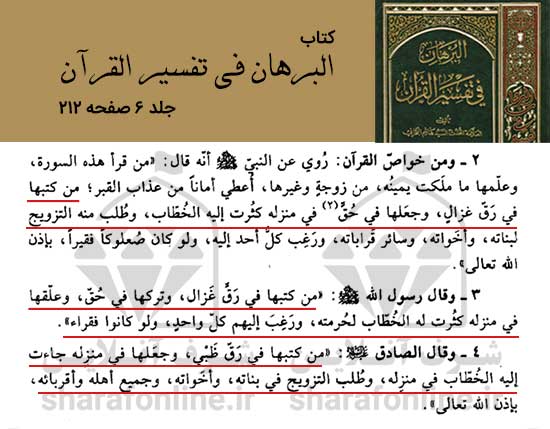 کتاب
البرهان فی تفسیر القرآن
جلد ۶ صفحه ۲۱۲
البرهان
في تفسير القرآن
٢ ـ ومن خواصّ القرآن: رُوي عن النبيّ ﷺ أنّه قال: «من قرأ هذه السورة،
وعلّمها ما ملكت يمينُه، من زوجةٍ وغيرها، أُعطي أماناً من عذاب القبر؛ من كتبها
في رَقّ غزالٍ، وجعَلها في حُقٍّ(٢) في منزله كثُرت إليه الخُطّاب، وطُلب منه التزويج
لبناته، وأخواته، وسائر قراباته، ورَغِب كلُّ أحد إليه، ولو كان صُعلوكاً فقيراً، بإذن
الله تعالى».
٣ ـ وقال رسول الله ﷺ: «من كتبها في رَقٍّ غَزال، وتركها في حُقّ، وعلّقها
في منزله كثُرت له الخُطّاب لحُرمته، ورَغِبَ إليهم كلّ واحدٍ، ولو كانوا فقراء».
٤ ـ وقال الصادق ﷷ: «من كتبها في رَقّ ظَبْي، وجعَلها في منزله جاءت
إليه الخُطّاب في منزِله، وطُلب التزويج في بناته، وأخواته، وجميع أهله وأقربائه،
بإذن الله تعالى».
شرف آنلاین
sharafonline.ir
sharafonline.ir